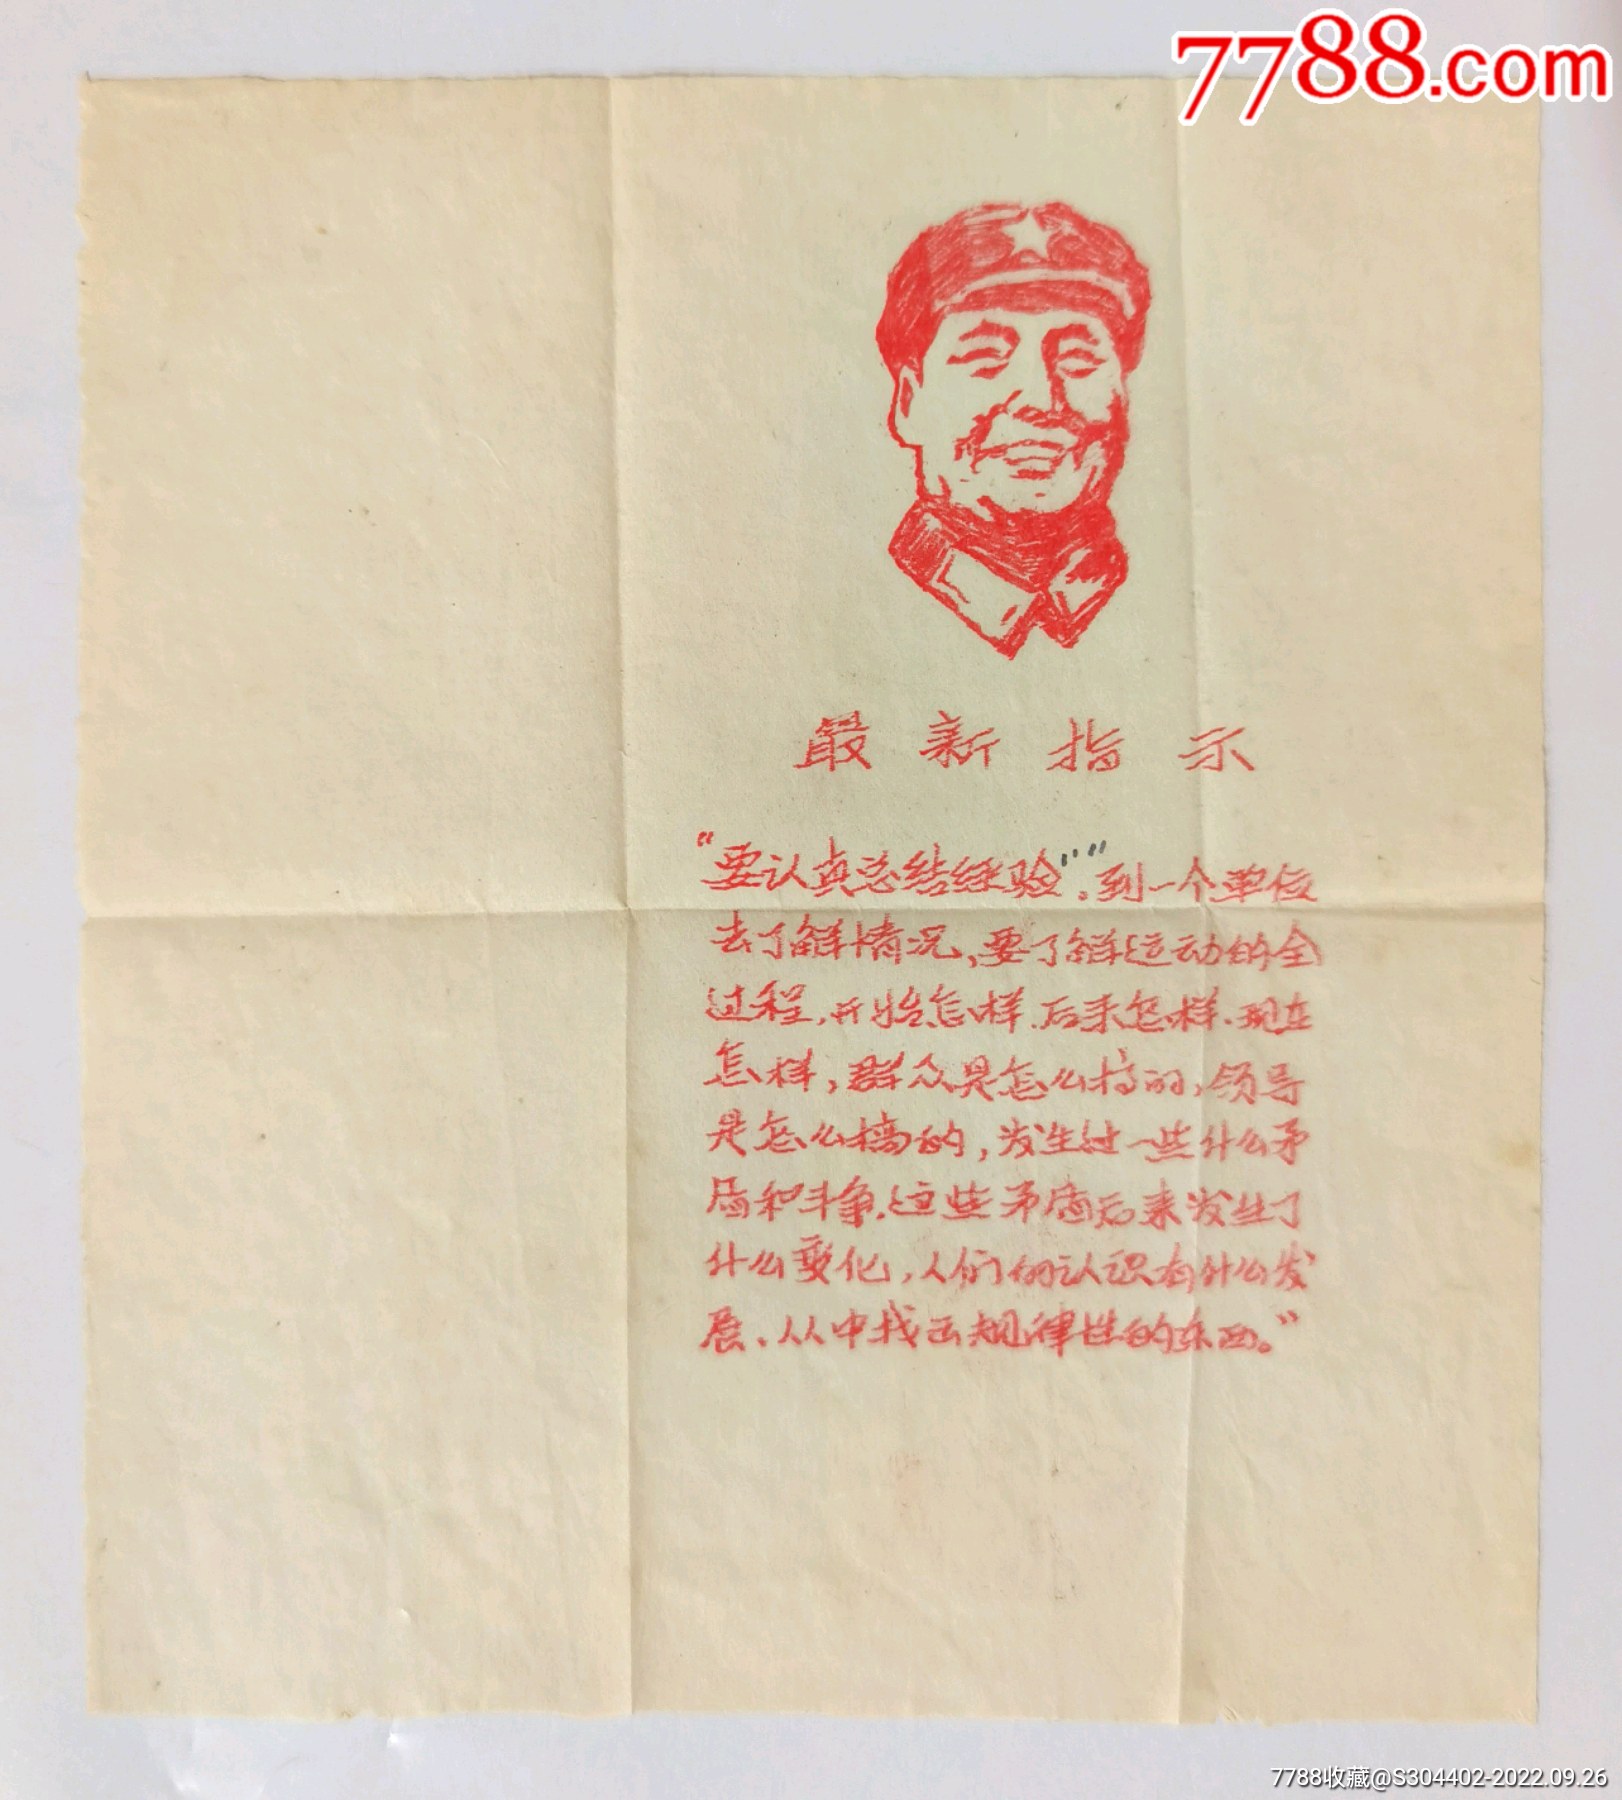 7788.com
最新指示
“要认真总结经验”“.到一个单位
去了解情况,要了解运动的全
过程,开始怎样.后来怎样.现在
怎样,群众是怎么搞的,领导
是怎么搞的,发生过一些什么矛
盾和斗争.这些矛盾后来发生了
什么变化,人们的认识有什么发
展、从中找出规律性的东西。”
7788收藏@S304402-2022.09.26